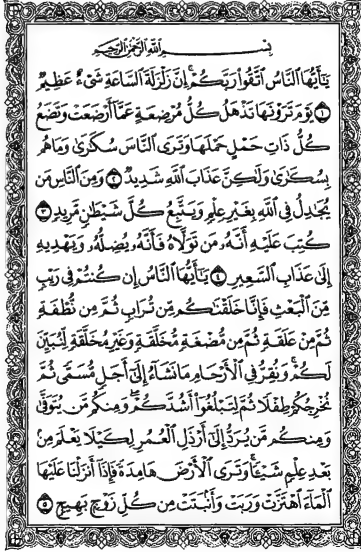 بِسْمِ اللَّهِ الرَّحْمَٰنِ الرَّحِيمِ
يَٰٓأَيُّهَا النَّاسُ اتَّقُوا۟ رَبَّكُمْ ۚ إِنَّ زَلْزَلَةَ السَّاعَةِ شَىْءٌ عَظِيمٌ
١ يَوْمَ تَرَوْنَهَا تَذْهَلُ كُلُّ مُرْضِعَةٍ عَمَّآ أَرْضَعَتْ وَتَضَعُ
كُلُّ ذَاتِ حَمْلٍ حَمْلَهَا وَتَرَى النَّاسَ سُكَٰرَىٰ وَمَا هُم
بِسُكَٰرَىٰ وَلَٰكِنَّ عَذَابَ اللَّهِ شَدِيدٌ ٢ وَمِنَ النَّاسِ مَن
يُجَٰدِلُ فِى اللَّهِ بِغَيْرِ عِلْمٍ وَيَتَّبِعُ كُلَّ شَيْطَٰنٍ مَّرِيدٍ ٣
كُتِبَ عَلَيْهِ أَنَّهُۥ مَن تَوَلَّاهُ فَأَنَّهُۥ يُضِلُّهُۥ وَيَهْدِيهِ
إِلَىٰ عَذَابِ السَّعِيرِ ٤ يَٰٓأَيُّهَا النَّاسُ إِن كُنتُمْ فِى رَيْبٍ
مِّنَ الْبَعْثِ فَإِنَّا خَلَقْنَٰكُم مِّن تُرَابٍ ثُمَّ مِن نُّطْفَةٍ
ثُمَّ مِنْ عَلَقَةٍ ثُمَّ مِن مُّضْغَةٍ مُّخَلَّقَةٍ وَغَيْرِ مُخَلَّقَةٍ لِّنُبَيِّنَ
لَكُمْ ۚ وَنُقِرُّ فِى الْأَرْحَامِ مَا نَشَآءُ إِلَىٰٓ أَجَلٍ مُّسَمًّى ثُمَّ
نُخْرِجُكُمْ طِفْلًا ثُمَّ لِتَبْلُغُوٓا۟ أَشُدَّكُمْ ۖ وَمِنكُم مَّن يُتَوَفَّىٰ
وَمِنكُم مَّن يُرَدُّ إِلَىٰٓ أَرْذَلِ الْعُمُرِ لِكَيْلَا يَعْلَمَ مِنۢ
بَعْدِ عِلْمٍ شَيْـًٔا ۚ وَتَرَى الْأَرْضَ هَامِدَةً فَإِذَآ أَنزَلْنَا عَلَيْهَا
الْمَآءَ اهْتَزَّتْ وَرَبَتْ وَأَنۢبَتَتْ مِن كُلِّ زَوْجٍۭ بَهِيجٍ ٥